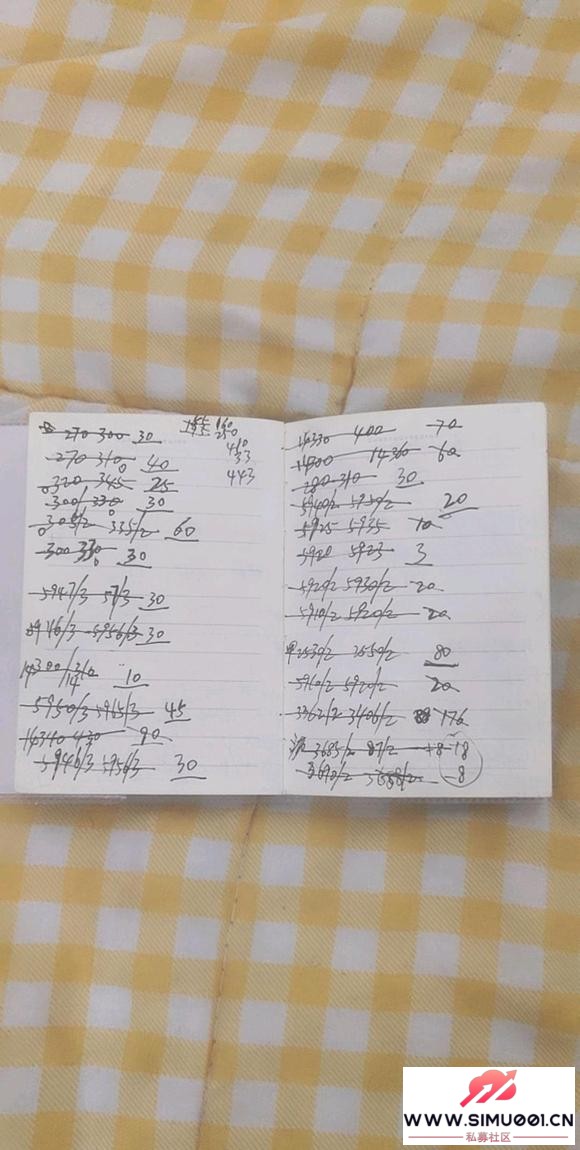 270 300 30
160
250
270 310 40
410
33
320 345 25
443
300 330 30
305/2 335/2 60
300 330 30
5947/3 57/3 30
5946/3 5956/3 30
14300/310 10
14
5950/3 5965/3 45
14340 430 90
5946/3 5956/3 30
14330 400 70
14300 1436 60
280 310 30
5940/2 5950/2 20
5925 5935 10
5920 5923 3
5920/2 5930/2 20
5910/2 5920/2 20
2530/2 2550/2 80
5910/2 5920/2 20
3362/2 3406/2 176
沪 3685/2 87/2 +8 -18
3690/2 8
WWW.SIMU001.CN
私募社区